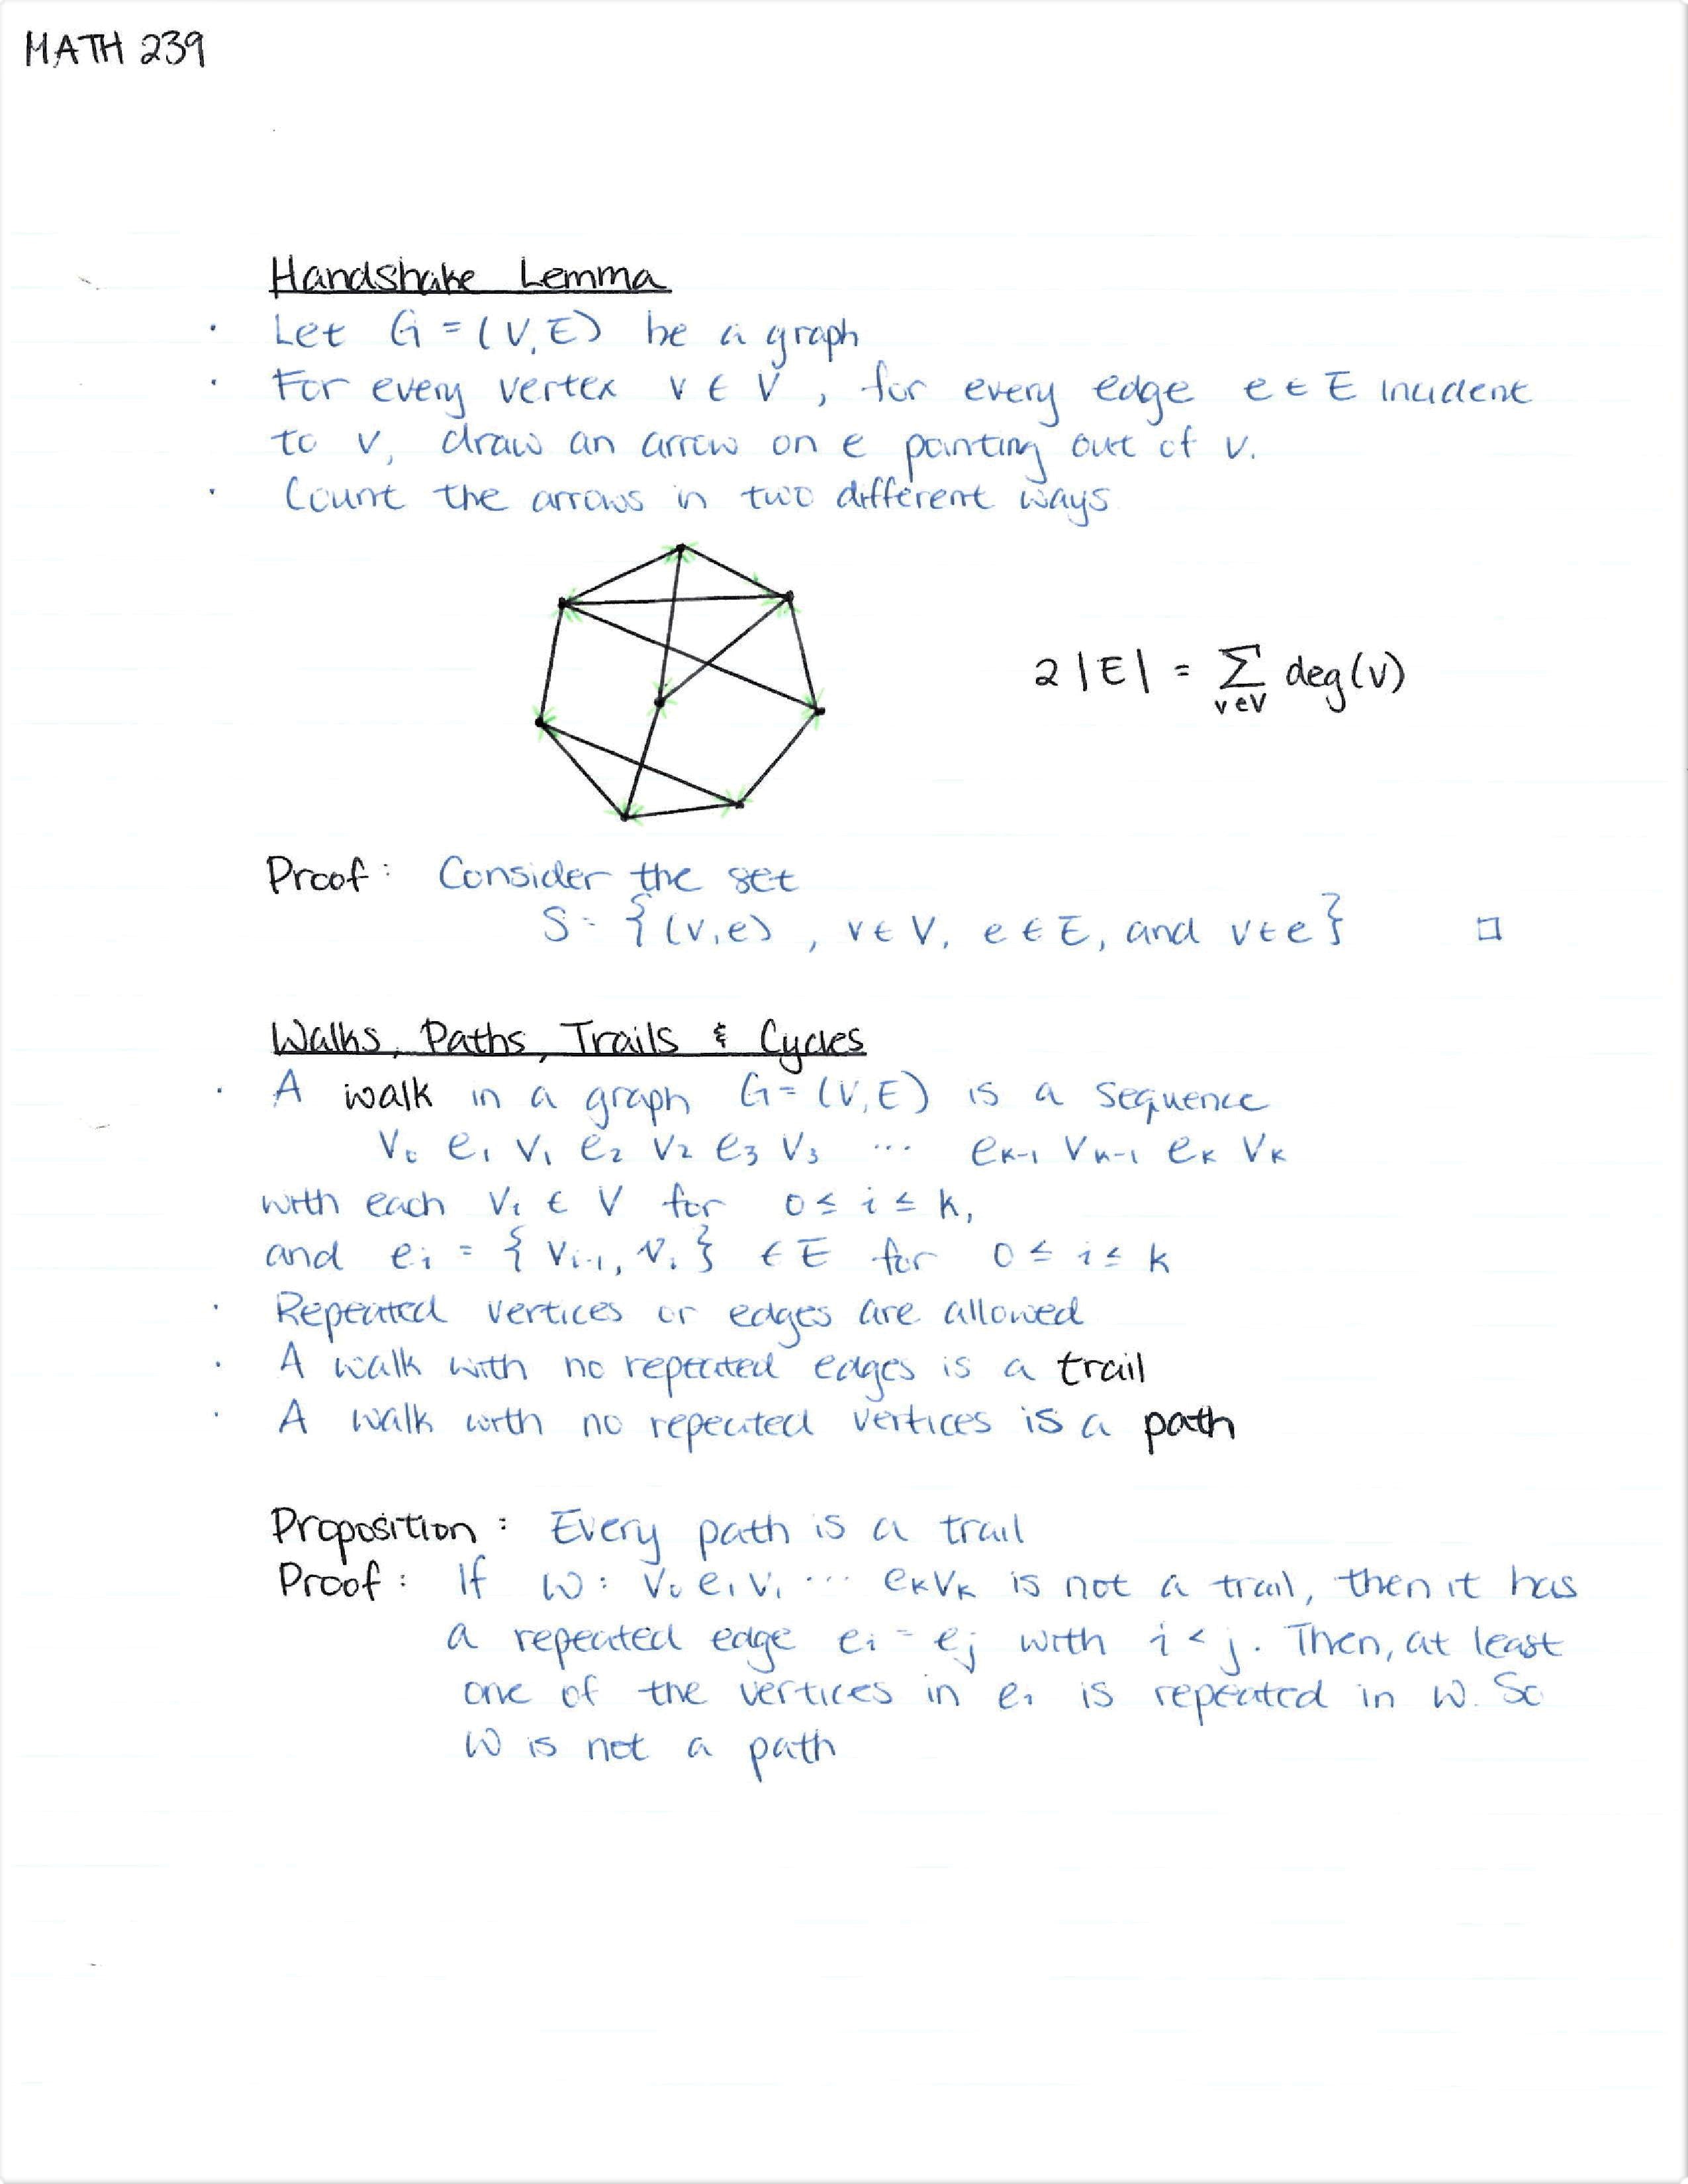 MATH 239
Handshake Lemma
· Let G = (V, E) be a graph
· For every vertex v ∈ V, for every edge e ∈ E incident
to v, draw an arrow on e pointing out of v.
· Count the arrows in two different ways
2|E| = Σ deg(v)
v∈V
Proof: Consider the set
S = {(v,e), v ∈ V, e ∈ E, and v ∈ e} □
Walks, Paths, Trails & Cycles
· A walk in a graph G = (V, E) is a sequence
v₀ e₁ v₁ e₂ v₂ e₃ v₃ ... eₖ₋₁ vₖ₋₁ eₖ vₖ
with each vᵢ ∈ V for 0 ≤ i ≤ k,
and eᵢ = {vᵢ₋₁, vᵢ} ∈ E for 0 ≤ i ≤ k
· Repeated vertices or edges are allowed
· A walk with no repeated edges is a trail
· A walk with no repeated vertices is a path
Proposition: Every path is a trail
Proof: If W: v₀ e₁ v₁ ... eₖ vₖ is not a trail, then it has
a repeated edge eᵢ = eⱼ with i < j. Then, at least
one of the vertices in eᵢ is repeated in W. So
W is not a path